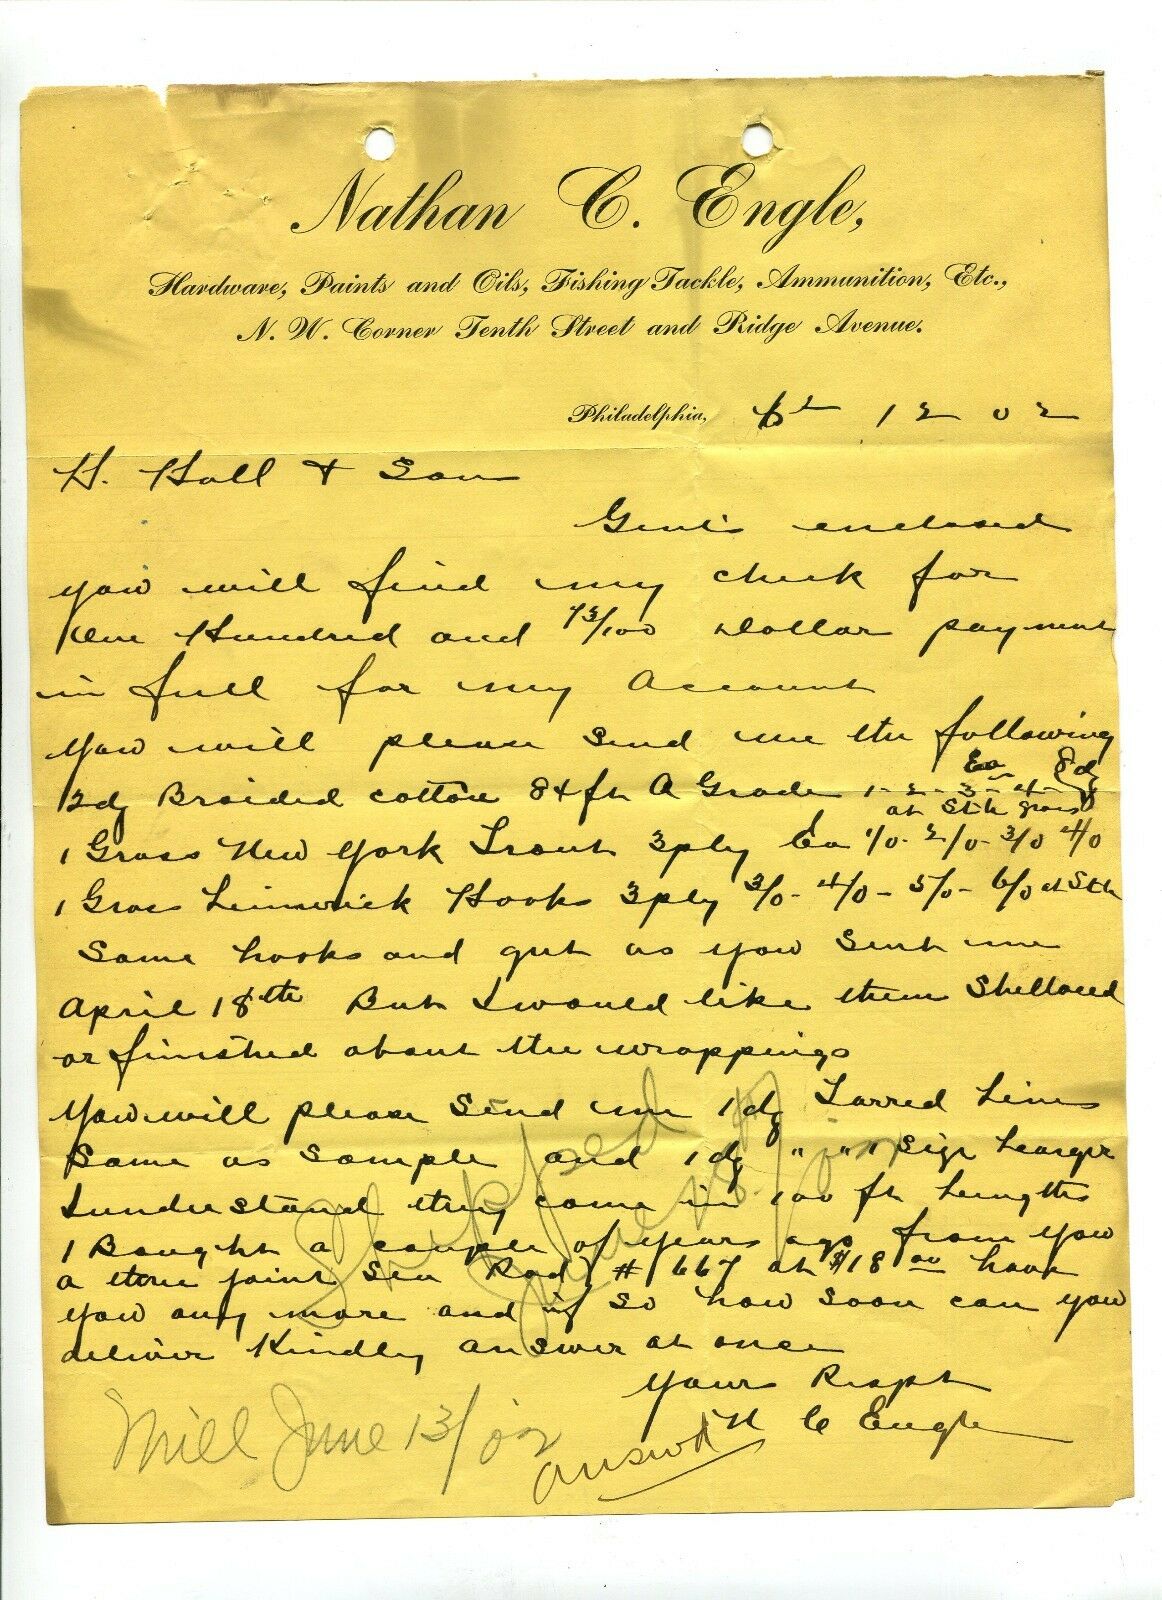 Nathan C. Engle,
Hardware, Paints and Oils, Fishing Tackle, Ammunition, Etc.,
N. W. Corner Tenth Street and Ridge Avenue.
Philadelphia, 6 12 02
H. Hall & Son
Gent's enclosed
you will find my check for
One Hundred and 73/100 Dollar payment
in full for my Account
You will please send me the following
Ea 8dz
2dz Braided cotton 84 ft A Grade 1-2-3-4-
at 5th gross
1 Gross New York Trout 3ply Ea 1/0-2/0-3/0 4/0
1 Gros Limerick Hooks 3ply 3/0-4/0-5/0-6/0 at 5th
Same hooks and gut as you sent me
April 18th But I would like them Shellaced
or finished about the wrappings
You will please send me 1 dz Tarred Lines
Same as sample and 1 dz " " 1 Size Learger
I understand they come in 100 ft Lengths
I Bought a couple of years ago from you
a three joint Sea Rod # 667 at $18 00 have
you any more and if so how soon can you
deliver Kindly answer at once
Yours Respt
N C Engle
Answd
Mill June 13/02
Shipped
June